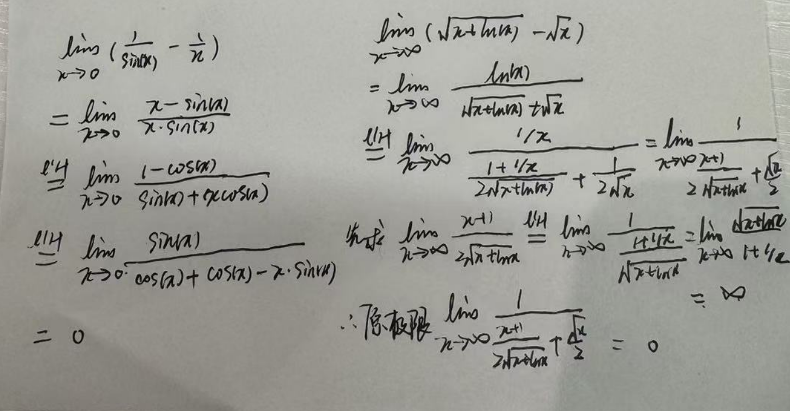 lim x→0 (1/sin(x) - 1/x)
= lim x→0 (x - sin(x))/(x·sin(x))
l'H = lim x→0 (1 - cos(x))/(sin(x) + xcos(x))
l'H = lim x→0 sin(x)/(cos(x) + cos(x) - x·sin(x))
= 0
lim x→∞ (√(x+ln(x)) - √x)
= lim x→∞ ln(x)/(√(x+ln(x)) + √x)
l'H = lim x→∞ (1/x)/((1+1/x)/(2√(x+ln(x))) + 1/(2√x)) = lim x→∞ 1/((x+1)/(2√(x+lnx)) + √x/2)
先求 lim x→∞ (x+1)/(2√(x+lnx)) l'H = lim x→∞ 1/((1+1/x)/√(x+lnx)) = lim x→∞ √(x+lnx)/(1+1/x)
= ∞
∴原极限 lim x→∞ 1/((x+1)/(2√(x+lnx)) + √x/2) = 0